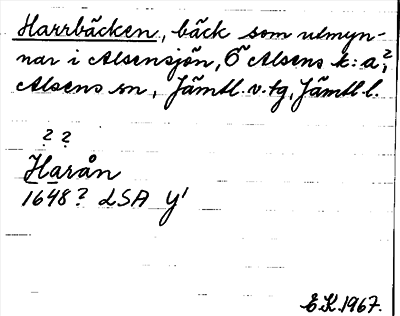 Harrbäcken, bäck som utmyn-
nar i Alsensjön, Ö Alsens k:a,?
Alsens sn, Jämtl.v.tg, Jämtl.l.
? ?
Harån
1648? LSA Y'
E.K.1967.